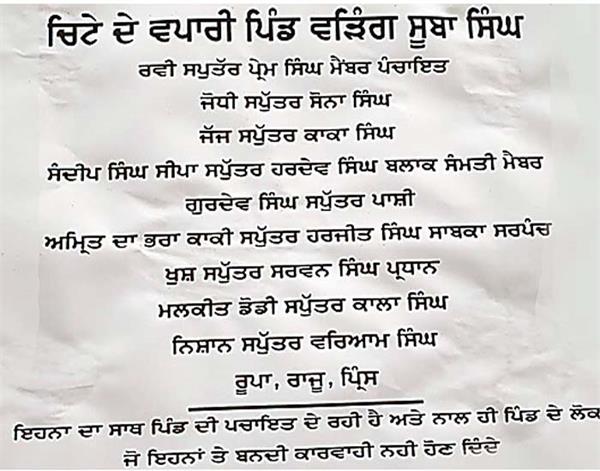 ਚਿਟੇ ਦੇ ਵਪਾਰੀ ਪਿੰਡ ਵੜਿੰਗ ਸੂਬਾ ਸਿੰਘ
ਰਵੀ ਸਪੁਤੱਰ ਪ੍ਰੇਮ ਸਿੰਘ ਮੈਂਬਰ ਪੰਚਾਇਤ
ਜੋਧੀ ਸਪੁੱਤਰ ਸੋਨਾ ਸਿੰਘ
ਜੱਜ ਸਪੁੱਤਰ ਕਾਕਾ ਸਿੰਘ
ਸੰਦੀਪ ਸਿੰਘ ਸੀਪਾ ਸਪੁੱਤਰ ਹਰਦੇਵ ਸਿੰਘ ਬਲਾਕ ਸੰਮਤੀ ਮੈਬਰ
ਗੁਰਦੇਵ ਸਿੰਘ ਸਪੁੱਤਰ ਪਾਸ਼ੀ
ਅਮ੍ਰਿਤ ਦਾ ਭਰਾ ਕਾਕੀ ਸਪੁੱਤਰ ਹਰਜੀਤ ਸਿੰਘ ਸਾਬਕਾ ਸਰਪੰਚ
ਖੁਸ਼ ਸਪੁੱਤਰ ਸਰਵਨ ਸਿੰਘ ਪ੍ਰਧਾਨ
ਮਲਕੀਤ ਡੋਡੀ ਸਪੁੱਤਰ ਕਾਲਾ ਸਿੰਘ
ਨਿਸ਼ਾਨ ਸਪੁੱਤਰ ਵਰਿਆਮ ਸਿੰਘ
ਰੂਪਾ, ਰਾਜੂ, ਪ੍ਰਿੰਸ
ਇਹਨਾ ਦਾ ਸਾਥ ਪਿੰਡ ਦੀ ਪਚਾਇਤ ਦੇ ਰਹੀ ਹੈ ਅਤੇ ਨਾਲ ਹੀ ਪਿੰਡ ਦੇ ਲੋਕ
ਜੋ ਇਹਨਾਂ ਤੇ ਬਨਦੀ ਕਾਰਵਾਹੀ ਨਹੀ ਹੋਣ ਦਿੰਦੇ